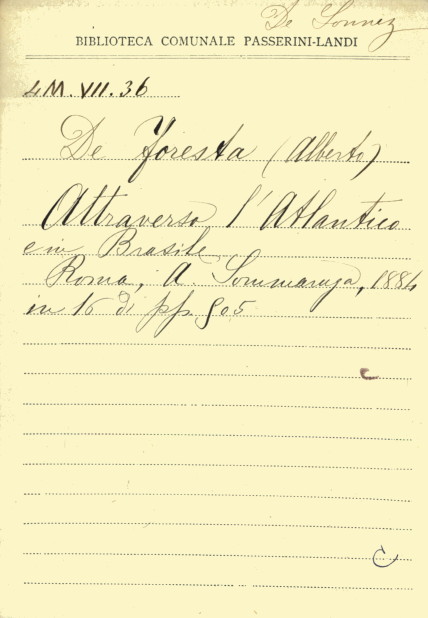 De
BIBLIOTECA COMUNALE PASSERINI-LANDI
4M.VII.36
De Foresta (Alberto)
Attraverso l'Atlantico
e in Brasile
Roma, A. Sommaruga, 1884
in 16 di pp. 505
C